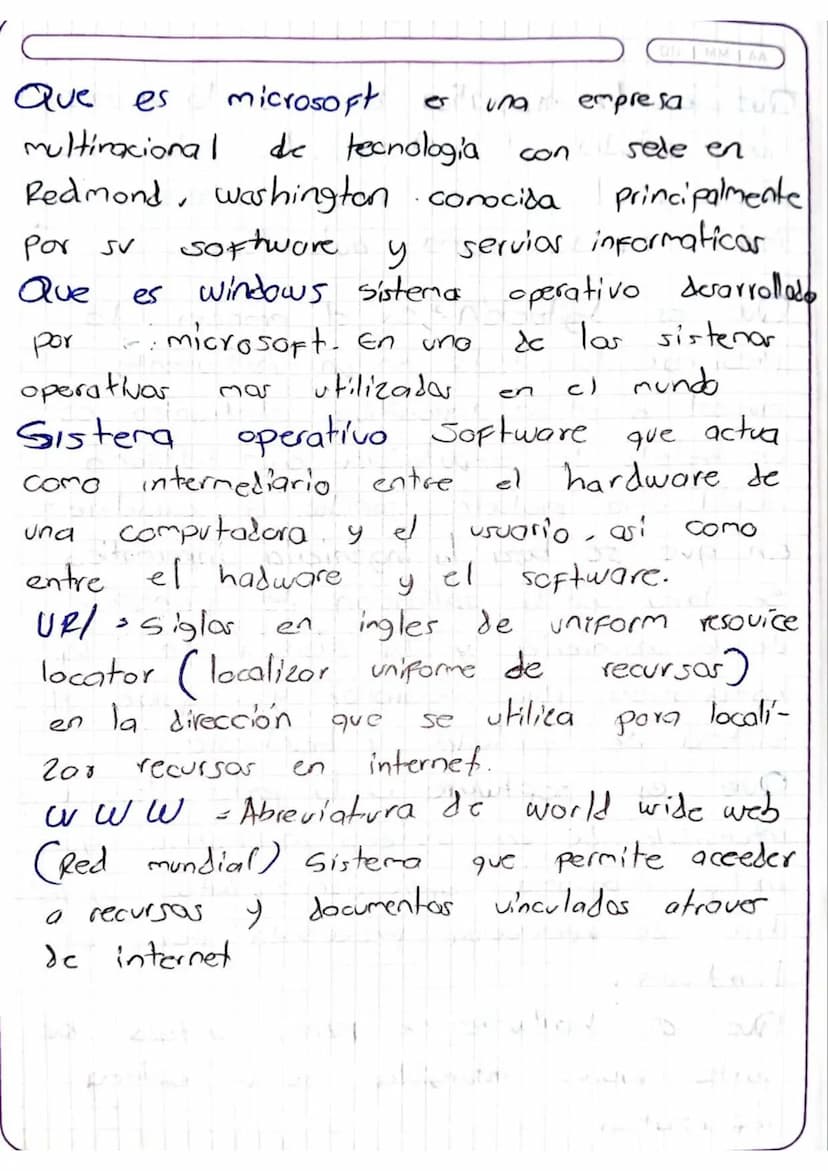 DD | MM | AA
Que es microsoft es una empresa
multinacional de tecnologia con sede en
Redmond, washington. conocida principalmente
por su software y servios informaticos
Que es windows sistema operativo desarrollado
por microsoft. En uno de los sistemas
operativos mas utilizadas en el mundo
Sistema operativo Software que actua
como intermediario entre el hardware de
una computadora y el usuario, asi como
entre el hadware y el software.
URl = Siglas en ingles de uniform resouice
locator (localizor uniforme de recursos)
en la dirección que se utiliza para locali-
zar recursos en internet.
W W W = Abreviatura de world wide web
(Red mundial) Sistema que permite acceder
a recursos y documentos vinculados atraves
de internet